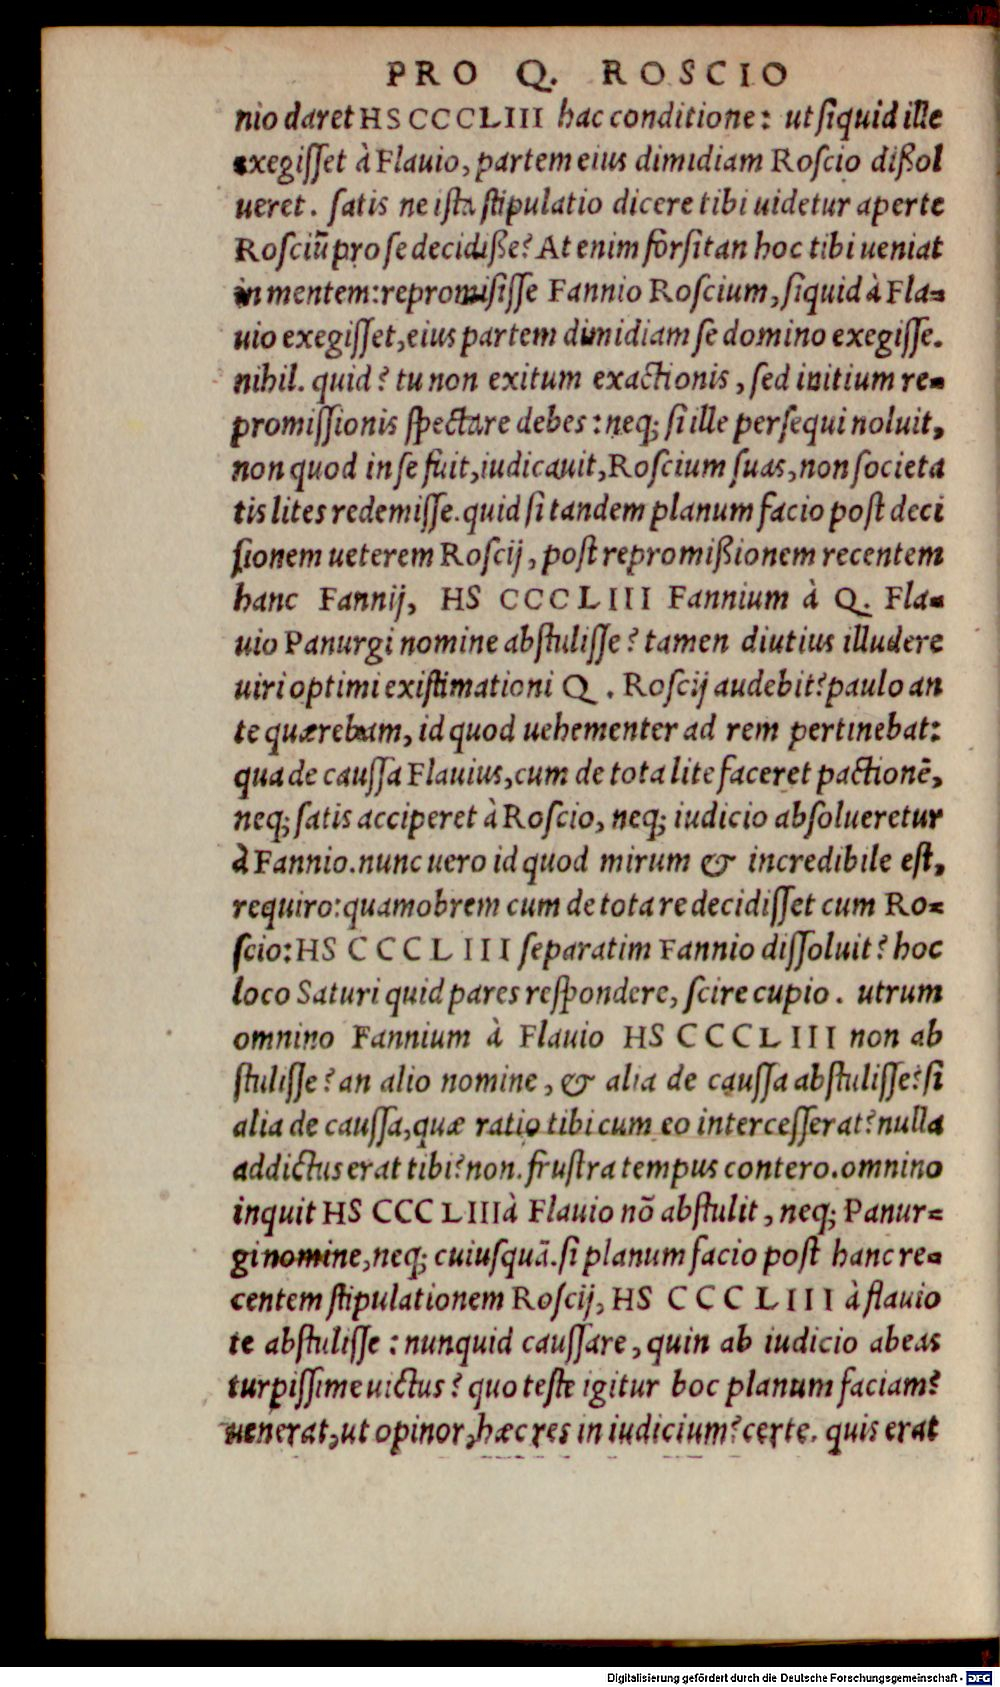 PRO Q. ROSCIO
nio daret HS CCCLIII hac conditione: ut siquid ille
exegisset à Flauio, partem eius dimidiam Roscio dißol
ueret. satis ne ista stipulatio dicere tibi uidetur aperte
Rosciũ pro se decidiße? At enim forsitan hoc tibi ueniat
in mentem: repromisisse Fannio Roscium, siquid à Fla=
uio exegisset, eius partem dimidiam se domino exegisse.
nihil. quid? tu non exitum exactionis, sed initium re=
promissionis spectare debes: neq; si ille persequi noluit,
non quod in se fuit, iudicauit, Roscium suas, non societa
tis lites redemisse. quid si tandem planum facio post deci
sionem ueterem Roscij, post repromißionem recentem
hanc Fannij, HS CCCLIII Fannium à Q. Fla=
uio Panurgi nomine abstulisse? tamen diutius illudere
uiri optimi existimationi Q. Roscij audebit? paulo an
te quærebam, id quod uehementer ad rem pertinebat:
qua de caussa Flauius, cum de tota lite faceret pactionẽ,
neq; satis acciperet à Roscio, neq; iudicio absolueretur
à Fannio. nunc uero id quod mirum & incredibile est,
requiro: quamobrem cum de tota re decidisset cum Ro=
scio: HS CCCLIII separatim Fannio dissoluit? hoc
loco Saturi quid pares respondere, scire cupio. utrum
omnino Fannium à Flauio HS CCCLIII non ab
stulisse? an alio nomine, & alia de caussa abstulisse? si
alia de caussa, quæ ratio tibi cum eo intercesserat? nulla
addictus erat tibi? non. frustra tempus contero. omnino
inquit HS CCCLIII à Flauio nõ abstulit, neq; Panur=
gi nomine, neq; cuiusquã. si planum facio post hanc re=
centem stipulationem Roscij, HS CCCLIII à flauio
te abstulisse: nunquid caussare, quin ab iudicio abeas
turpissime uictus? quo teste igitur hoc planum faciam?
uenerat, ut opinor, hæc res in iudicium? certe. quis erat
Digitalisierung gefördert durch die Deutsche Forschungsgemeinschaft - DFG